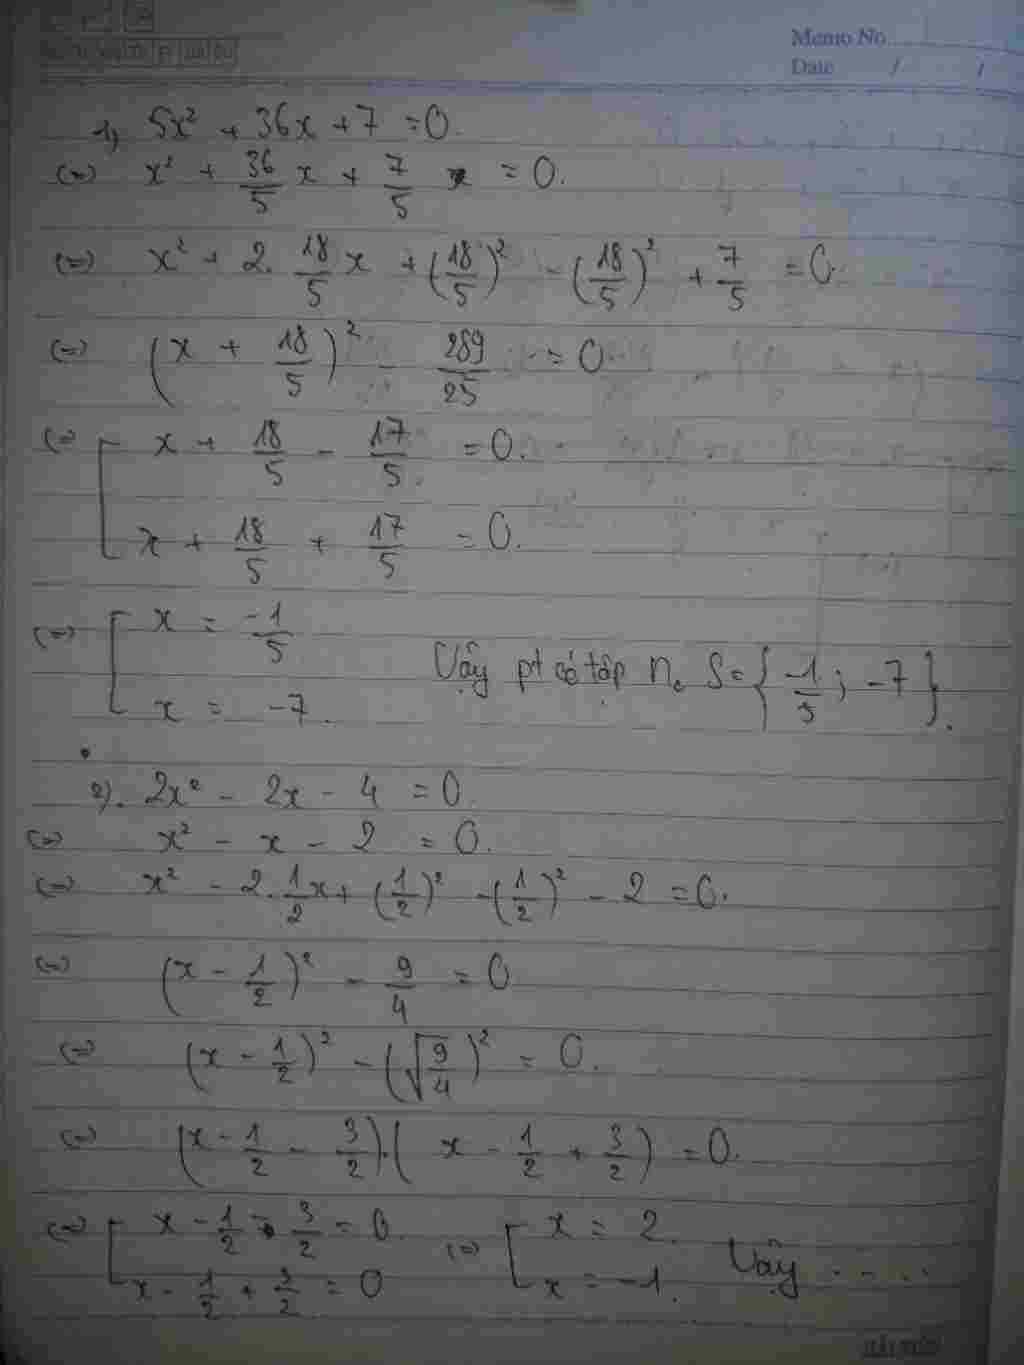 Memo No
Date / /
1, 5x² + 36x + 7 = 0.
(=) x² + 36/5 x + 7/5 = 0.
(=) x² + 2. 18/5 x + (18/5)² - (18/5)² + 7/5 = 0.
(=) (x + 18/5)² - 289/25 = 0
(= [ x + 18/5 - 17/5 = 0.
x + 18/5 + 17/5 = 0.
(=) [ x = -1/5
x = -7.
Vậy pt có tập n₀ S = {-1/5; -7}.
2). 2x² - 2x - 4 = 0
(=) x² - x - 2 = 0.
(=) x² - 2. 1/2 x + (1/2)² - (1/2)² - 2 = 0.
(=) (x - 1/2)² - 9/4 = 0
(=) (x - 1/2)² - (√9/4)² = 0.
(=) (x - 1/2 - 3/2).( x - 1/2 + 3/2) = 0.
(=) [ x - 1/2 - 3/2 = 0 (=) [ x = 2. Vậy .....
x - 1/2 + 3/2 = 0 x = -1.